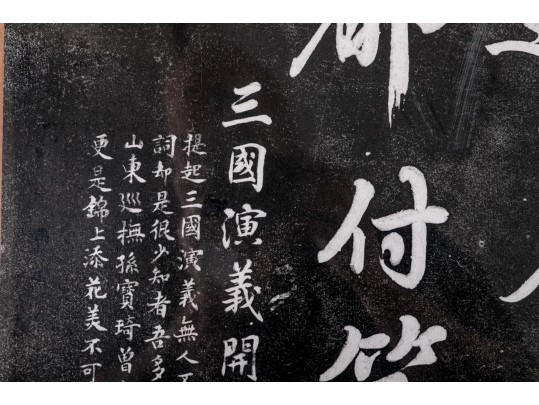 都付笑
三國演義開
提起三國演義無人
詞却是很少知者吾多
山東巡撫孫寶琦曾
更是錦上添花美不可